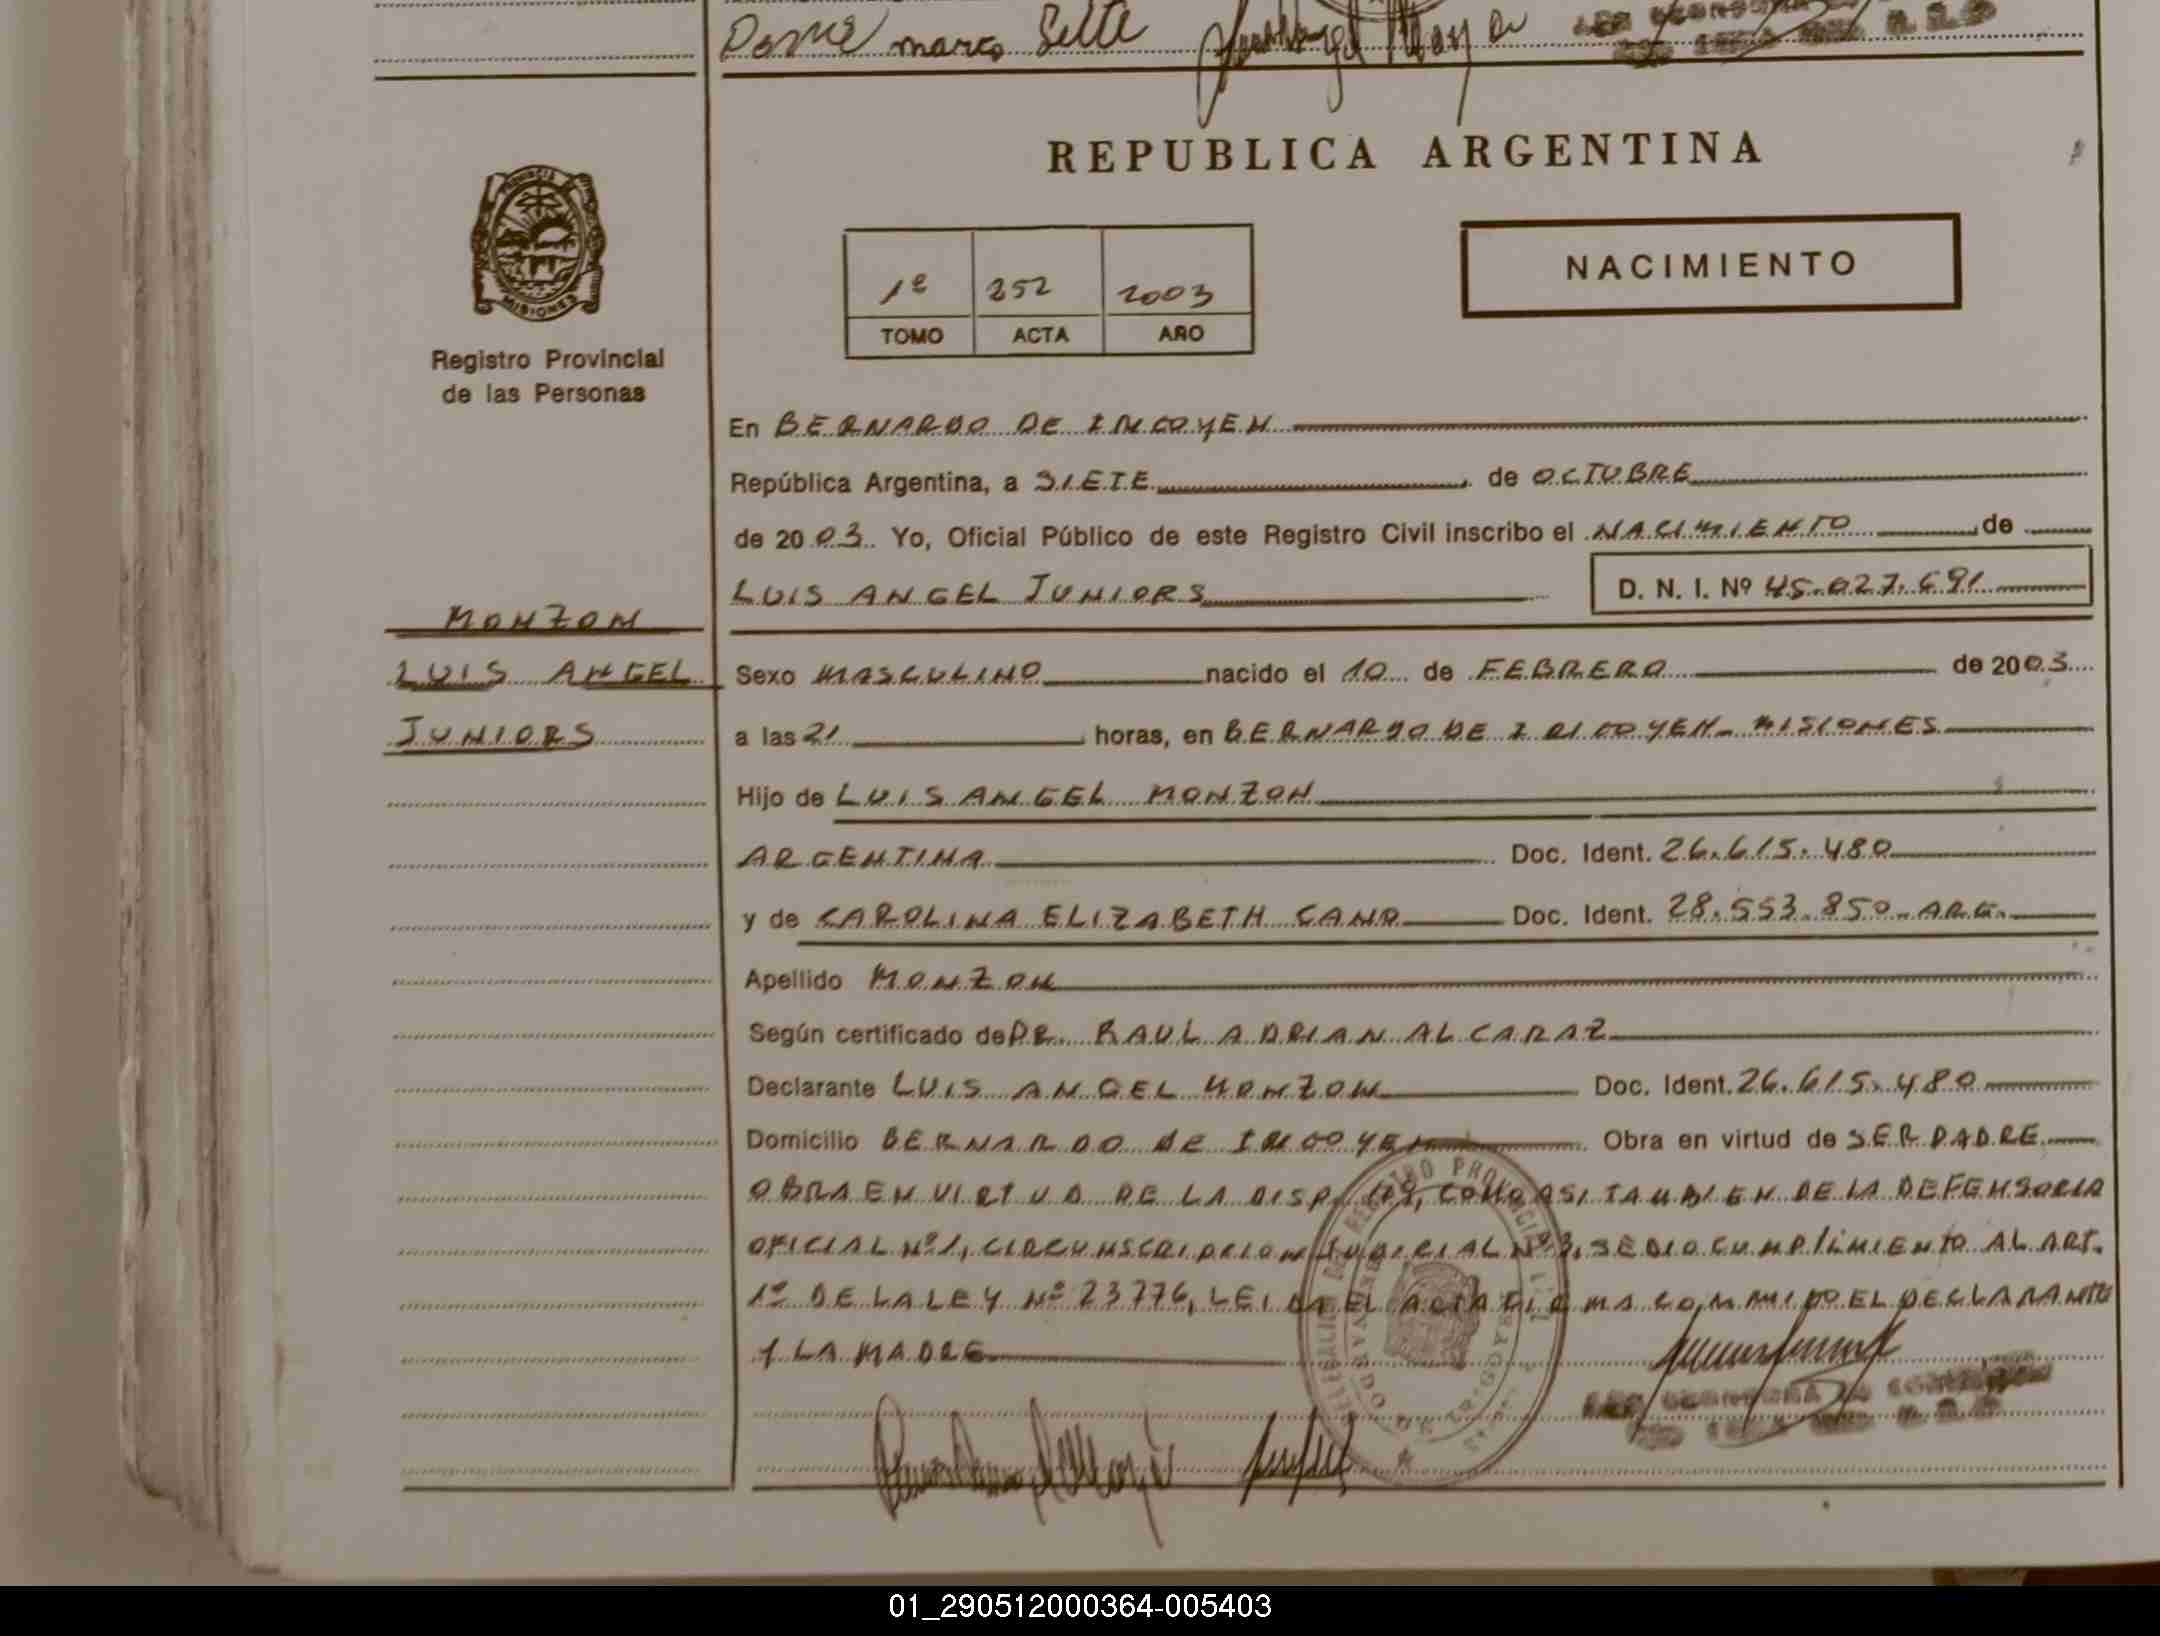 marco Sette
REPUBLICA ARGENTINA
PROVINCIA DE
MISIONES
Registro Provincial
de las Personas
1º 252 2003
TOMO ACTA AÑO
NACIMIENTO
En BERNARDO DE IRIGOYEN
República Argentina, a SIETE de OCTUBRE
de 2003. Yo, Oficial Público de este Registro Civil inscribo el NACIMIENTO de
LUIS ANGEL JUNIORS D. N. I. Nº 45.027.691
MONZON
LUIS ANGEL
JUNIORS
Sexo MASCULINO nacido el 10 de FEBRERO de 2003
a las 21 horas, en BERNARDO DE IRIGOYEN - MISIONES
Hijo de LUIS ANGEL MONZON
ARGENTINA Doc. Ident. 26.615.480
y de CAROLINA ELIZABETH CANO Doc. Ident. 28.553.850 - ARG.
Apellido MONZON
Según certificado de DR. RAUL ADRIAN ALCARAZ
Declarante LUIS ANGEL MONZON Doc. Ident. 26.615.480
Domicilio BERNARDO DE IRIGOYEN Obra en virtud de SER PADRE
OBRA EN VIRTUD DE LA DISP. COMO ASI TAMBIEN DE LA DEFENSORIA
OFICIAL Nº 1, CIRCUNSCRIPCION JUDICIAL Nº 3, SE DIO CUMPLIMIENTO AL ART.
1º DE LA LEY Nº 23776, LEIDA EL ACTA FIRMA CONMIGO EL DECLARANTE
Y LA MADRE
01_290512000364-005403